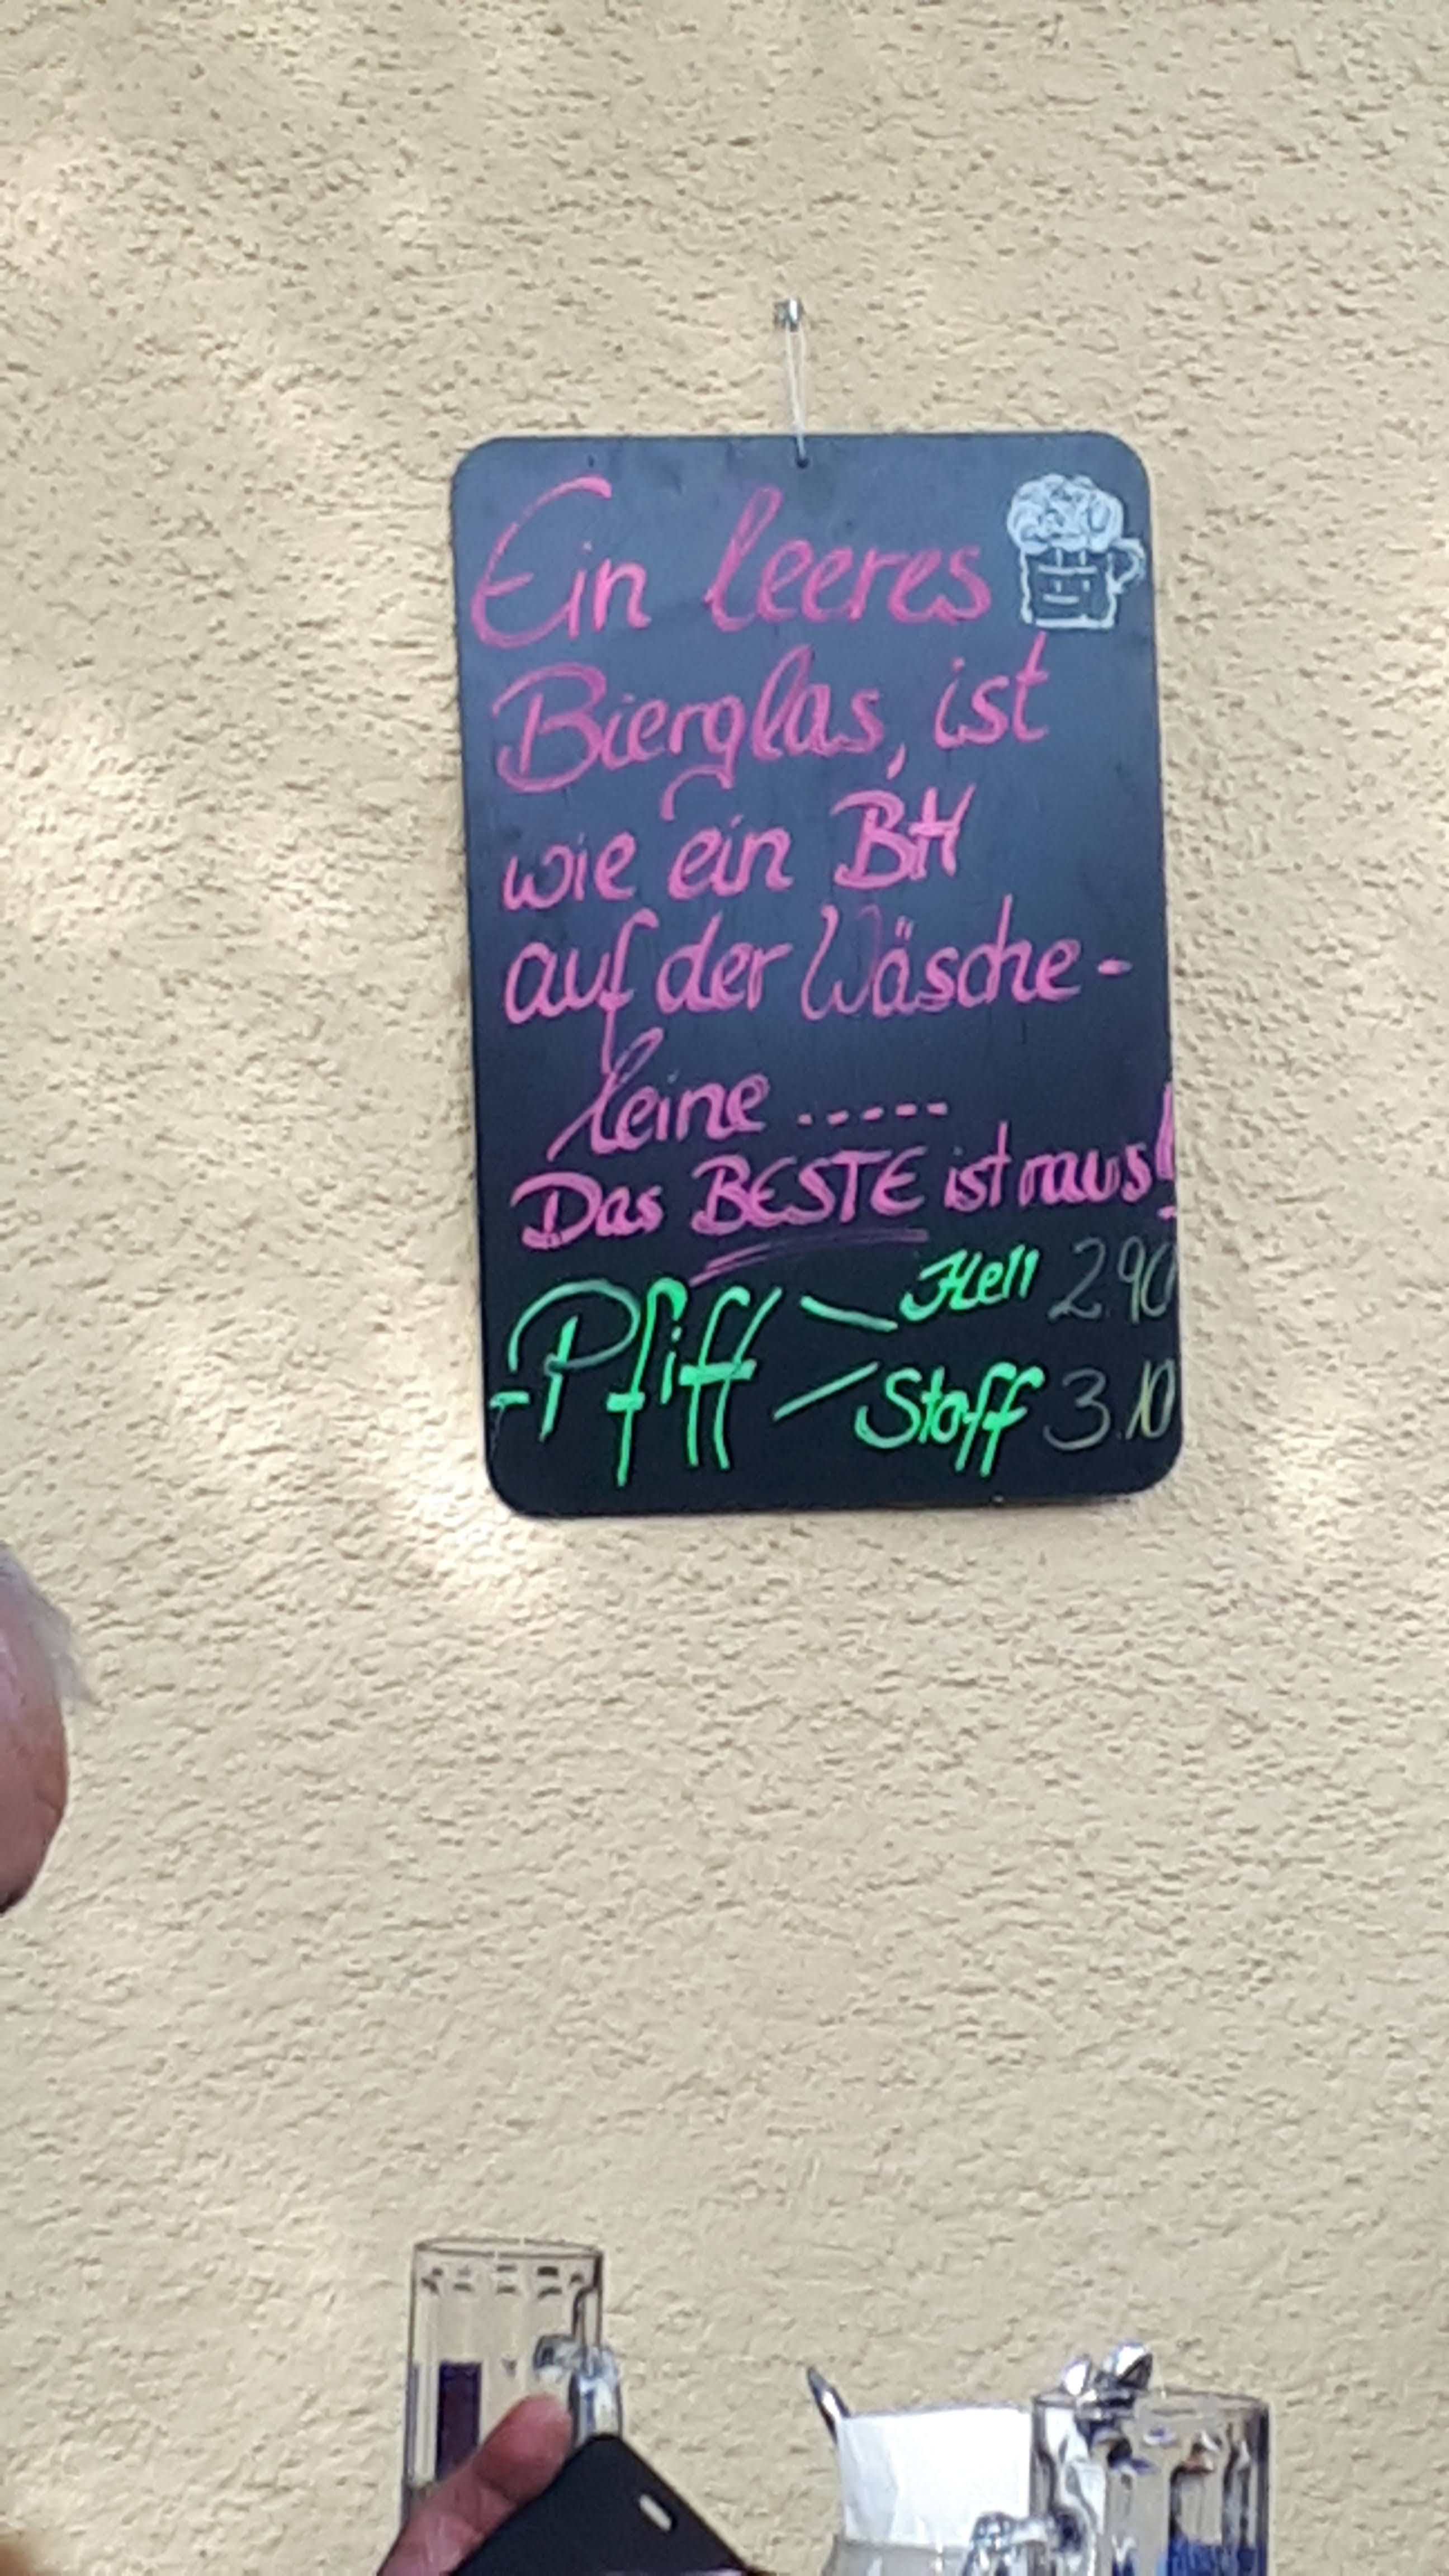 Ein leeres
Bierglas, ist
wie ein BH
auf der Wäsche-
leine .....
Das BESTE ist raus!
Pfiff
Hell 2.90
Stoff 3.10